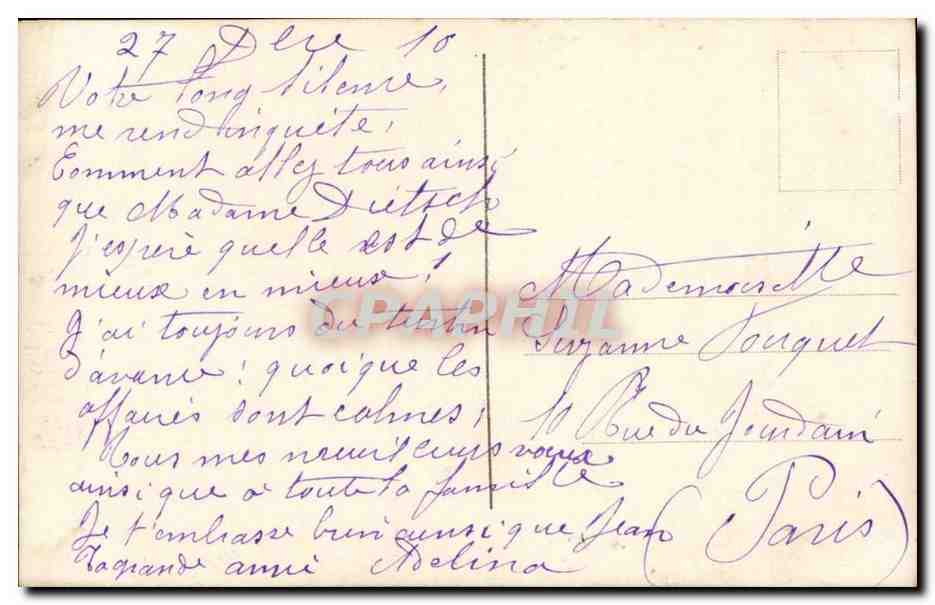 27 Dere 10
Votre long silence,
me rend inquiète,
Comment allez tous ainsi
que Madame Dietsch
J'espère quelle est de
mieux en mieux!
J'ai toujours du
d'avance! quoique les
affaires sont calmes,
Tous mes meilleurs voeux
ainsi que a toute la famille
Je t'embrasse bien ainsi que Jean
Ta grande amie Adelina
Mademoiselle
Suzanne Fouquet
10 Rue du Jourdain
(Paris)
CPAPHIL